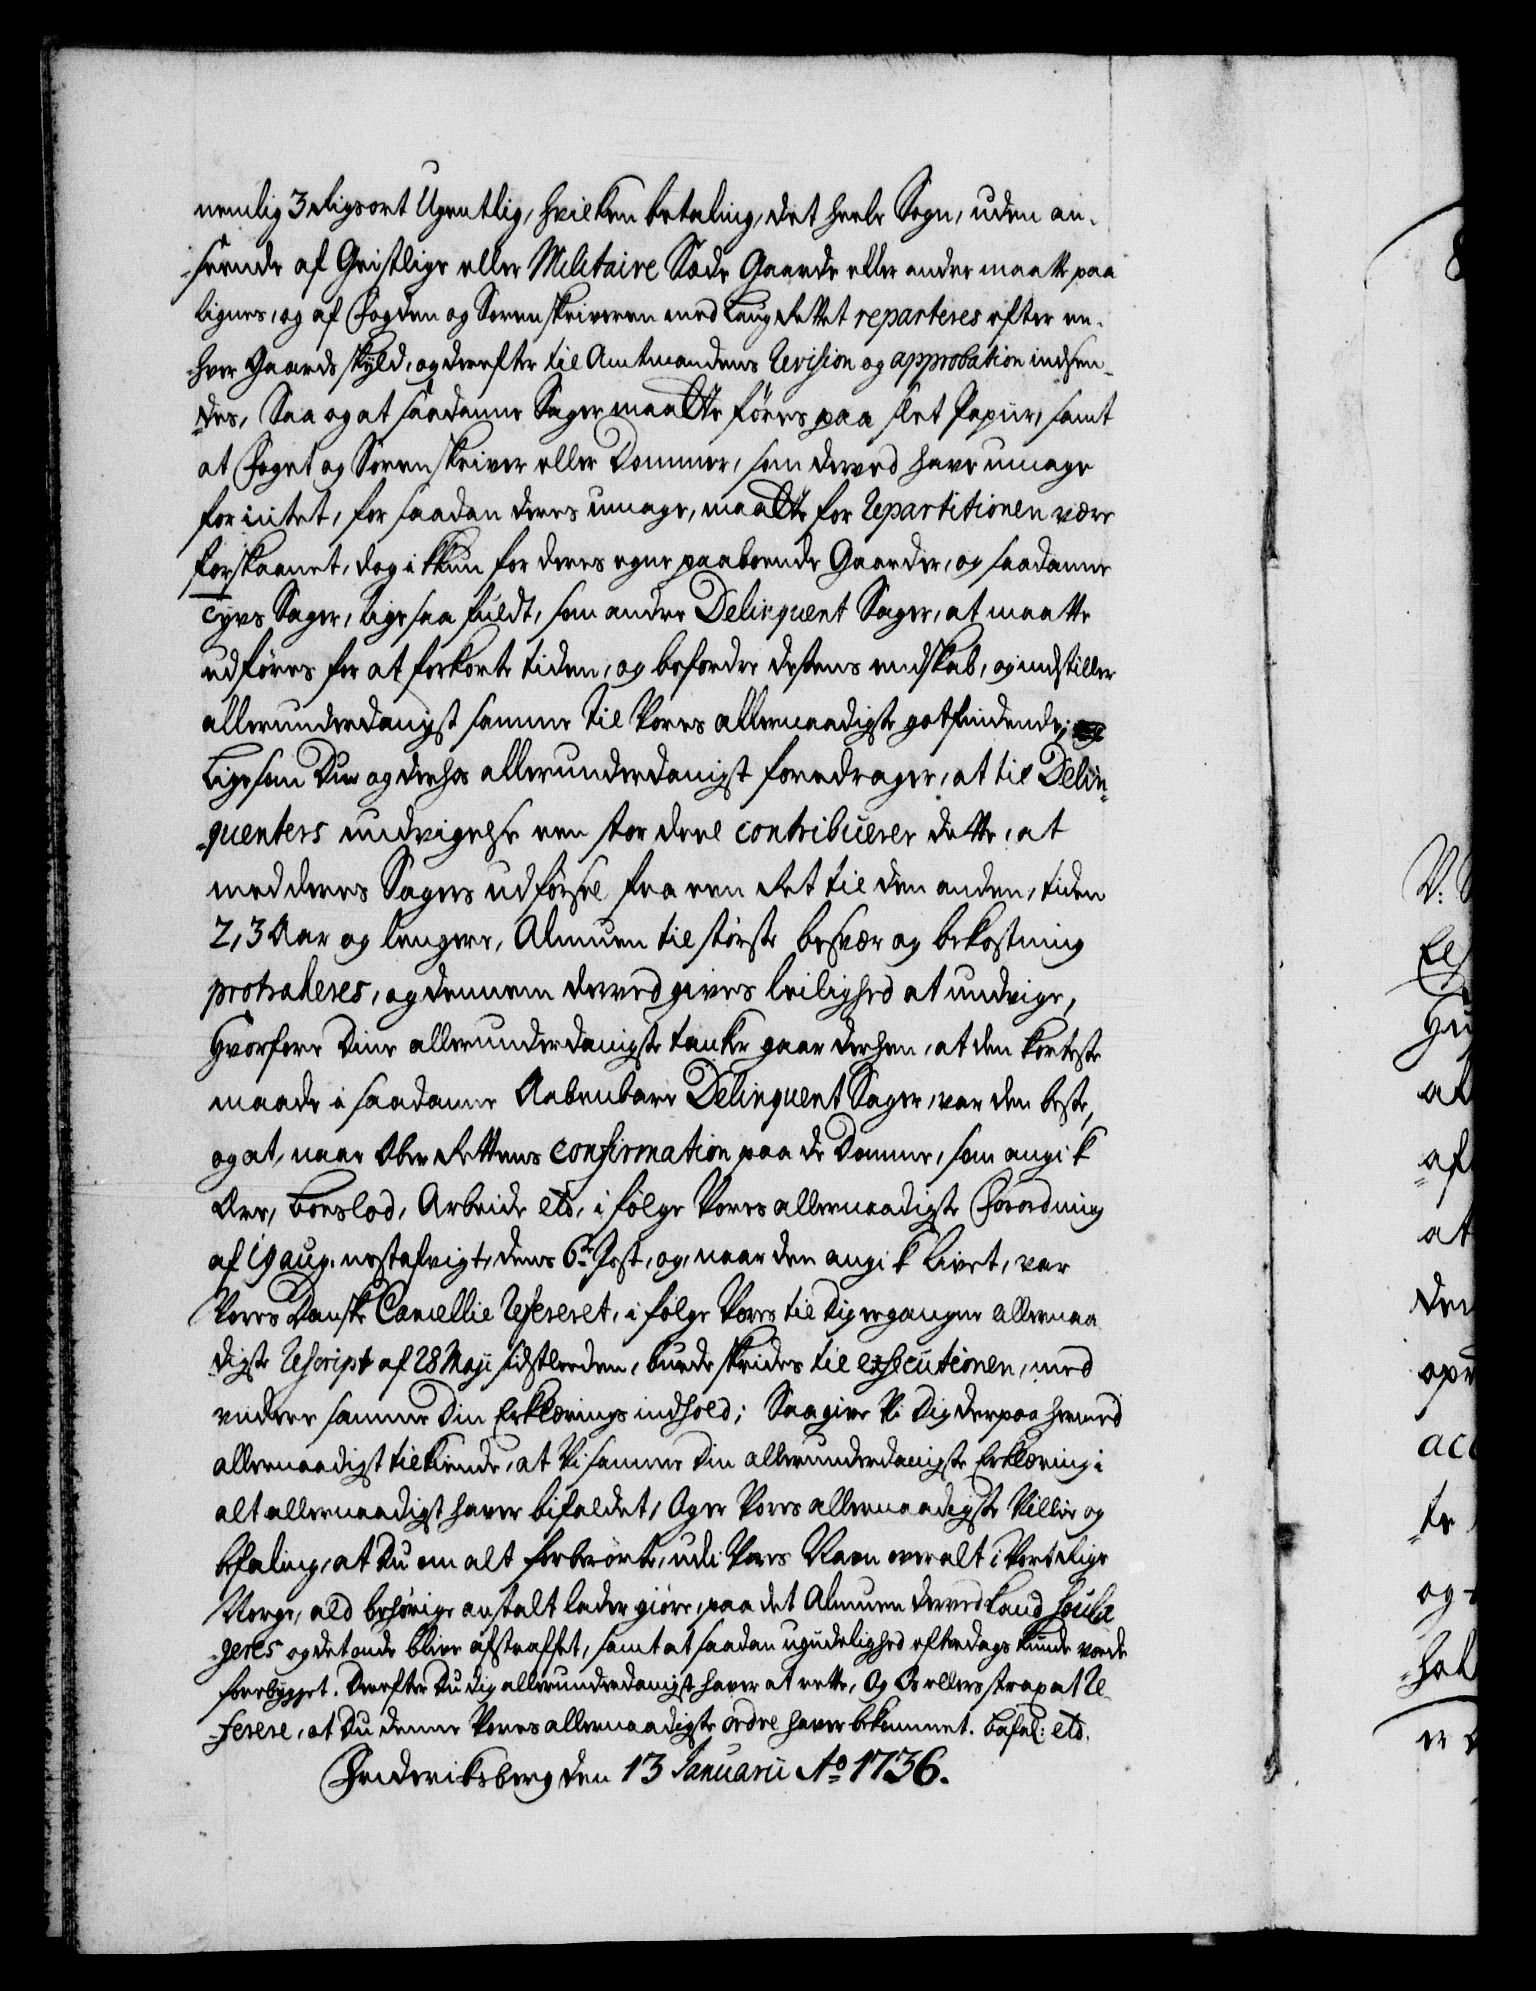 nemlig 3 Rigsort Ugentlig, hvilken betaling, det heele Sogn, uden an-
-seende af Geistlige eller Militaire Sæde Gaarde eller andre maatte paa
lignes, og af Fogden og Sorenskriveren med Laug Rettet reparteres efter en-
-hver Gaards skyld, og derefter til Amtmandens Revision og approbation indsen-
-des, Saa og at saadanne Sager maatte föres paa slet Papiir, samt
at Foget og Sorenskriver eller Dommer, som derved have umage
for intet, for saadan deres umage, maatte for Repartitionen være
forskaanet, dog ikkun for deres egne paaboende Gaarder, og saadanne
Tyvs Sager, lige saa fuldt, som andre Delinquent Sager, at maatte
udföres for at forkorte tiden, og befordre dessens endskab, og indstiller
allerunderdanigst samme til Vores allernaadigste gotfindende;
Ligesom Du og derhos allerunderdanigst foredrager, at til Delin-
-quenters undvigelse een stor deel contribuerer dette, at
med deres Sagers udförsel fra een Ret til den anden, tiden
2, 3 Aar og lengere, Almuen til störste besvær og bekostning
protraheres, og dennem derved gives leilighed at undvige,
Hvorfore Dine allerunderdanigste tanker gaar derhen, at den korteste
maade i saadanne Aabenbare Delinquent Sager, var den beste,
og at, naar Ober Rettens confirmation paa de Domme, som angik
Ære, boeslod, Arbeide etc, i fölge Vores allernaadigste Forordning
af 19 aug. nestafvigt, dens 6te Post, og, naar den angik Livet, var
Vores Danske Cancellie Refereret, i fölge Vores til Dig ergangne allernaa
digste Rescript af 28 Maji sidstleeden, burde skrides til executionen, med
videre samme Din Erklærings indhold; Saa give Vi Dig derpaa hermed
allernaadigst tilkiende, at Vi samme Din allerunderdanigste Erklæring i
alt allernaadigst haver bifaldet, Og er Vores allernaadigste Villie og
befaling, at Du om alt forberörte, udi Vores Navn over alt i Vort Rige
Norge, ald behörige anstalt lader giöre, paa det Almuen derved kand soula
-geres og det onde blive afstraffet, samt at saadan ugudelighed efterdags kunde vorde
forebygget. Derefter Du dig allerunderdanigst haver at rette, Og Os ellers strax at Re-
-ferere, at Du denne Vores allernaadigste ordre haver bekommet. Befal: etc.
Frideriksberg den 13 Januarii Ao 1736.